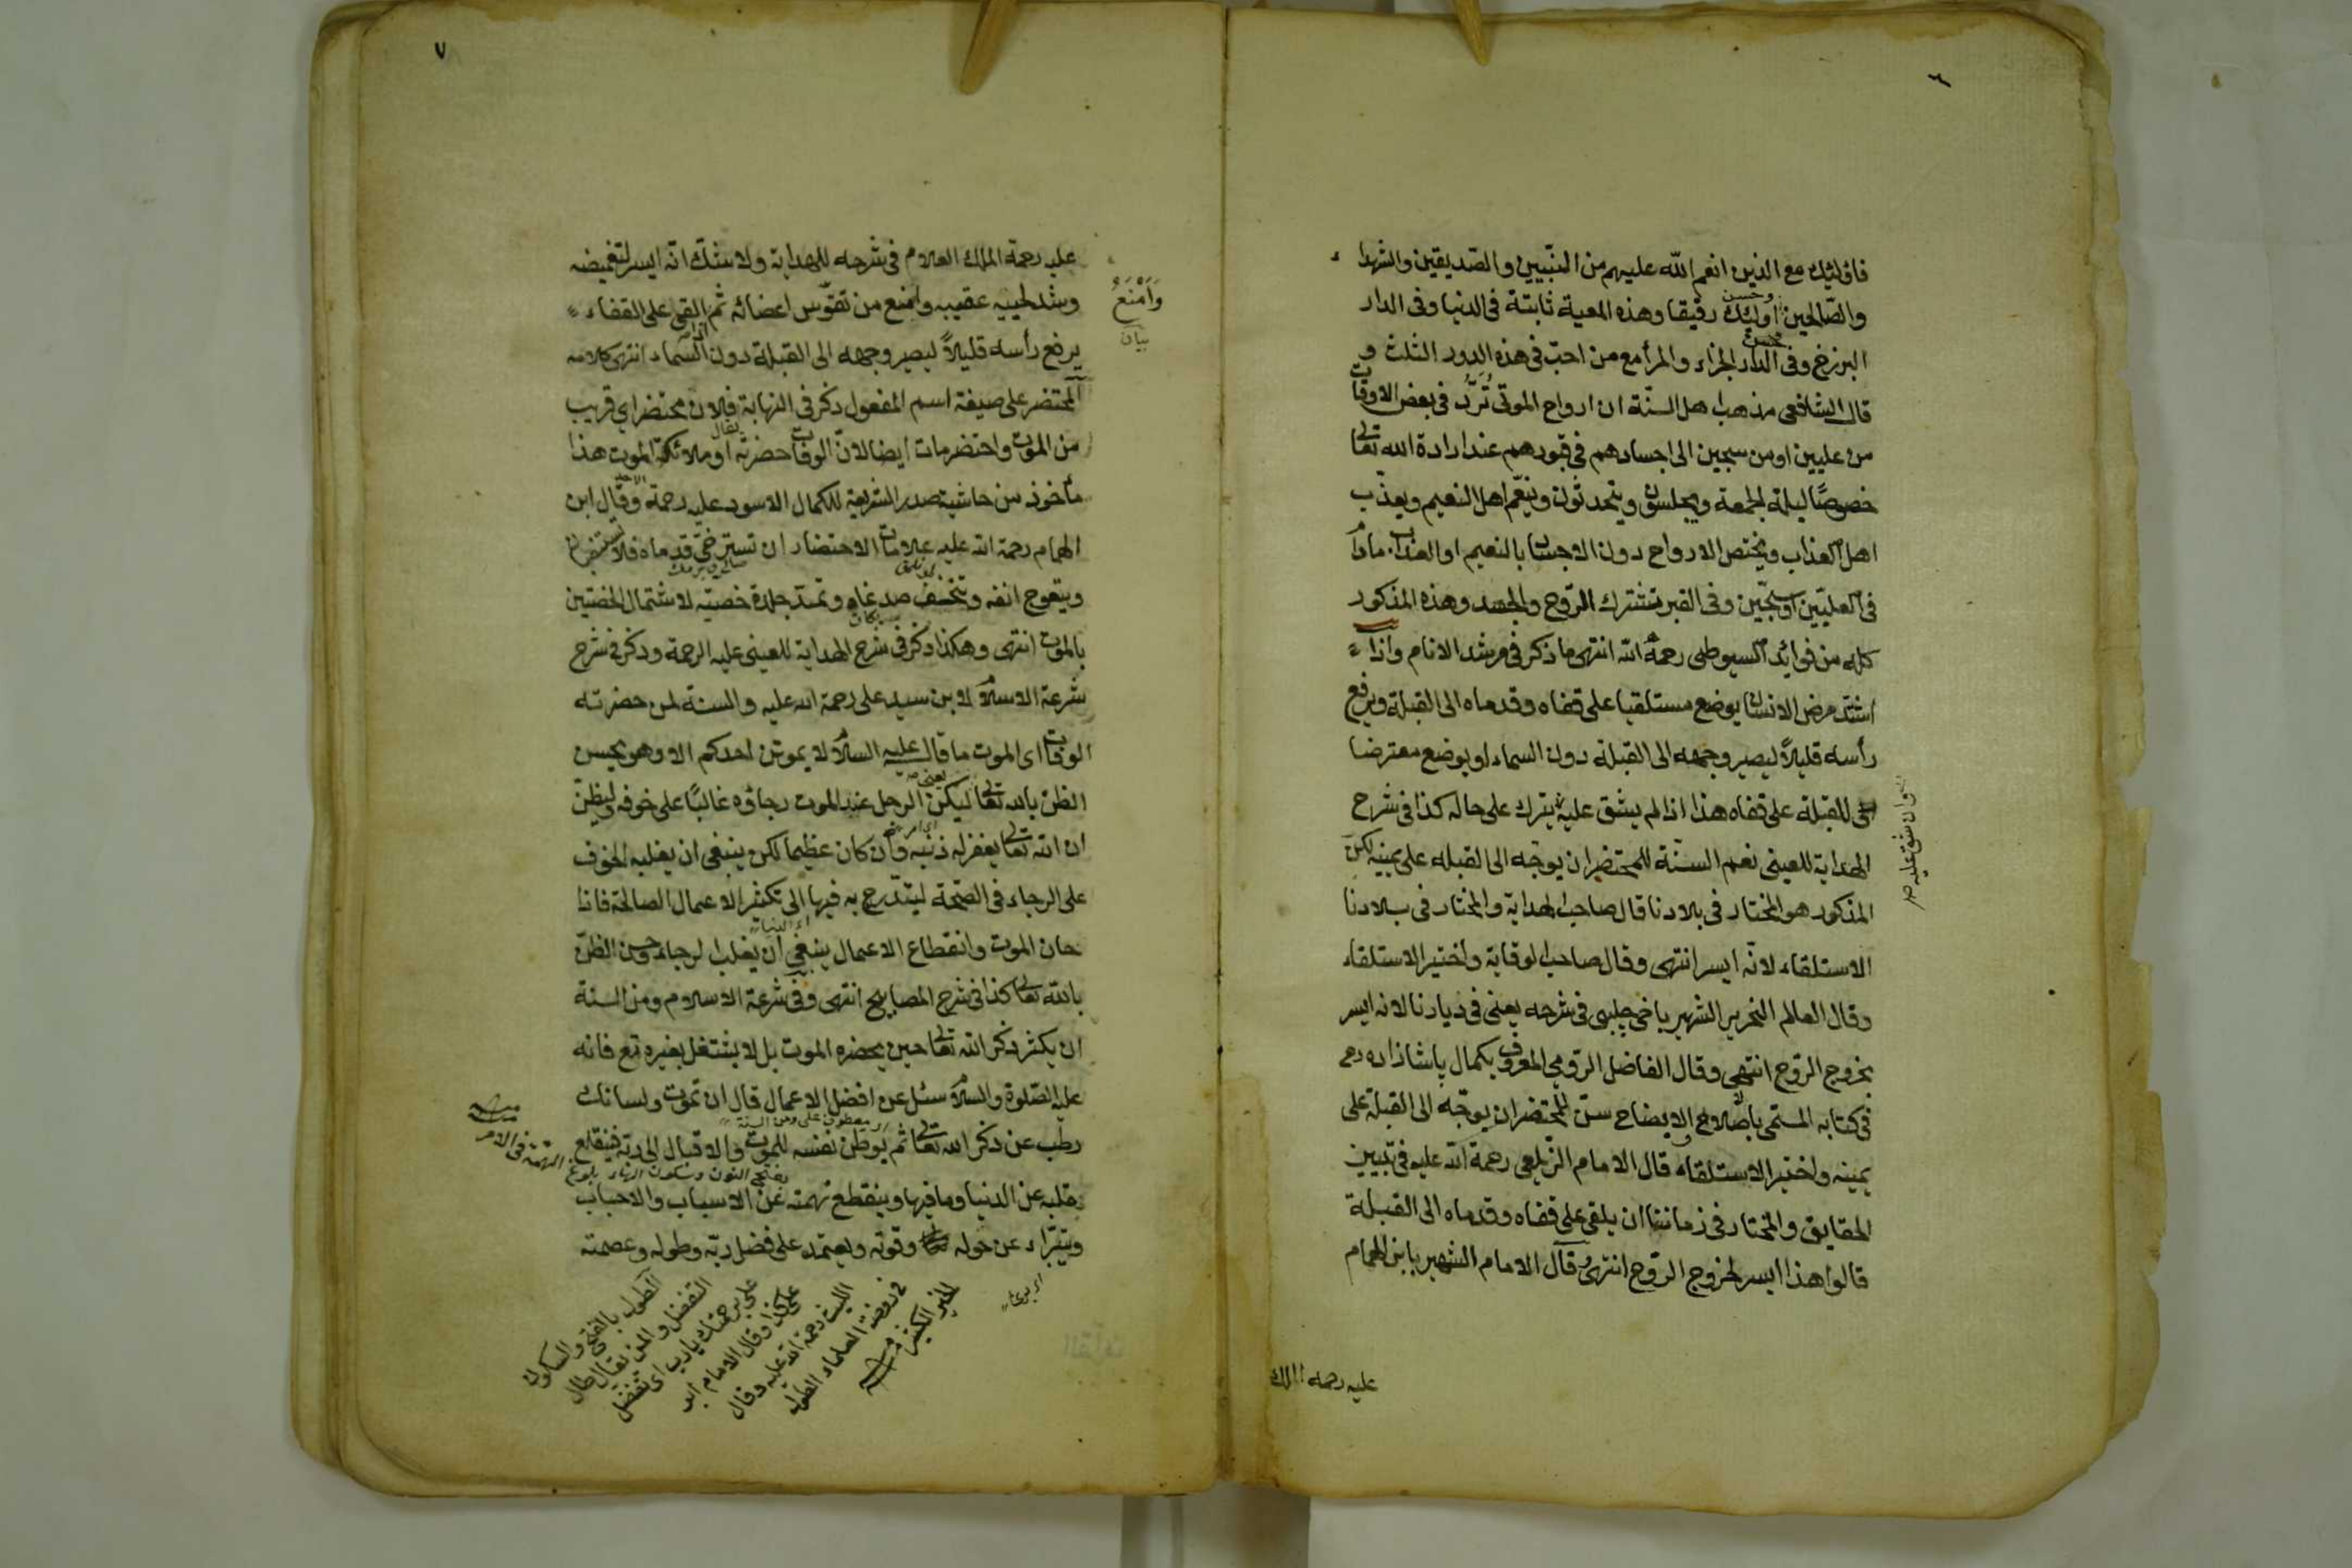 ٦
فاولئك مع الذين انعم الله عليهم من النبيين والصديقين والشهداء
والصالحين وحسن اولئك رفيقا وهذه المعية ثابتة فى الدنيا وفى الدار
البرزخ وفى الدار الجزاء والمرأ مع من احب فى هذه الدور الثلث و
قال الشافعى مذهب اهل السنة ان ارواح الموتى تُرَدُّ فى بعض الاوقات
من عليين او من سجين الى اجسادهم فى قبورهم عند ارادة الله تعالى
خصوصًا ليلة الجمعة ويجلسون ويتحدثون وينعّم اهل النعيم ويعذب
اهل العذاب ويختص الارواح دون الاجساد بالنعيم او العذاب مادام
فى العليّين او سجّين وفى القبر تشترك الرّوح والجسد وهذه المذكور
كله من فوائد السيوطى رحمه الله انتهى ما ذكر فى مرشد الانام واذا
اشتد مرض الانسان يوضع مستلقيا على قفاه وقدماه الى القبلة ويرفع
رأسه قليلاً ليصير وجهه الى القبلة دون السماء او يوضع معترضا
للقبلة على قفاه هذا اذا لم يشق عليه يترك على حاله كذا فى شرح
وان شق عليه صح
الهداية للعينى نعم السنّة للمحتضر ان يوجّه الى القبله على يمينه لكن
المذكور هو المختار فى بلادنا قال صاحب الهداية والمختار فى بلادنا
الاستلقاء لانّه ايسر انتهى وقال صاحب الوقاية واختير الاستلقاء
وقال العالم النحرير الشهير باخى چلبى فى شرحه يعنى فى ديارنا لانه ايسر
بخروج الرّوح انتهى وقال الفاضل الرّومى المعروف بكمال پاشا زاده
فى كتابه المسمّى باصلاح الايضاح سنّ للمحتضر ان يوجّه الى القبلة على
يمينه واختير الاستلقاء قال الامام الزّيلعى رحمة الله عليه فى تبيين
الحقايق والمختار فى زماننا ان يلقى على قفاه وقدماه الى القبلة
قالوا هذا ايسر لخروج الرّوح انتهى وقال الامام الشهير بابن الهمام
عليه رحمة الملك
٧
عليه رحمة الملك العلام فى شرحه للهداية ولا شك انّه ايسر لتغميضه
وشد لحييه عقيبه وامنع من تقوّس اعضائه ثم اذا القى على القفاء
وَاَمْنَعُ
بيان
يرفع رأسه قليلاً ليصير وجهه الى القبلة دون السّماء انتهى كلامه
المحتضر على صيغة اسم المفعول ذكر فى النهاية فلان محتضر اى قريب
من الموت واحتضر مات ايضا لان الوفاة حضرته او ملائكة الموت هذا
مأخوذ من حاشية صدر الشريعة للكمال الاسود عليه رحمة وقال ابن
الهمام رحمة الله عليه علامات الاحتضار ان تسترخى قدماه فلا تنتصبان
ويتعوج انفه وينخسف صدغاه وتمتد جلدة خصيته لاشتمال الخصيتين
بالموت انتهى وهكذا ذكر فى شرح الهداية للعينى عليه الرحمة وذكر فى شرح
شرعة الاسلام لابن سيد على رحمة الله عليه والسنة لمن حضرته
الوفات اى الموت ما قال عليه السلام لا يموتن احدكم الا وهو يحسن
الظن بالله تعالى يعنى ليكن الرجل عند الموت رجاؤه غالبًا على خوفه وليظنّ
ان الله تعالى يغفر له ذنبه وان كان عظيما لكن ينبغى ان يغلبه الخوف
على الرجاء فى الصّحة ليتدّرج به فيها الى تكثير الاعمال الصالحة فاذا
حان الموت وانقطاع الاعمال ينبغى ان يغلب الرجاء وحسن الظنّ
بالله تعالى كذا فى شرح المصابيح انتهى وفى شرعة الاسلام ومن السنة
ان يكثر ذكر الله تعالى حين يحضره الموت بل لا يشتغل بغيره تع فانه
عليه الصّلوة والسّلام سئل عن افضل الاعمال قال ان تموت ولسانك
رطب عن ذكر الله تعالى ثم يوطّن نفسه للموت والاقبال الى ربّه فينقلع
معطوف على ومن السنة
بفتح النون وسكون الهاء بلوغ
الهمّة فى الامر
قلبه عن الدنيا وما فيها وينقطع نهمته عن الاسباب والاحباب
ويتبرّاء عن حوله وقوته ويعتمد على فضل ربّه وطوله وعصمته
الطول بالفتح والسكون
التفضل والمن يقال طال
على برحمتك يا رب اى تفضل
على كذا وقال الامام ابو
الليث رحمة الله عليه وقال
فى روضة العلماء الطول
الخير الكثير